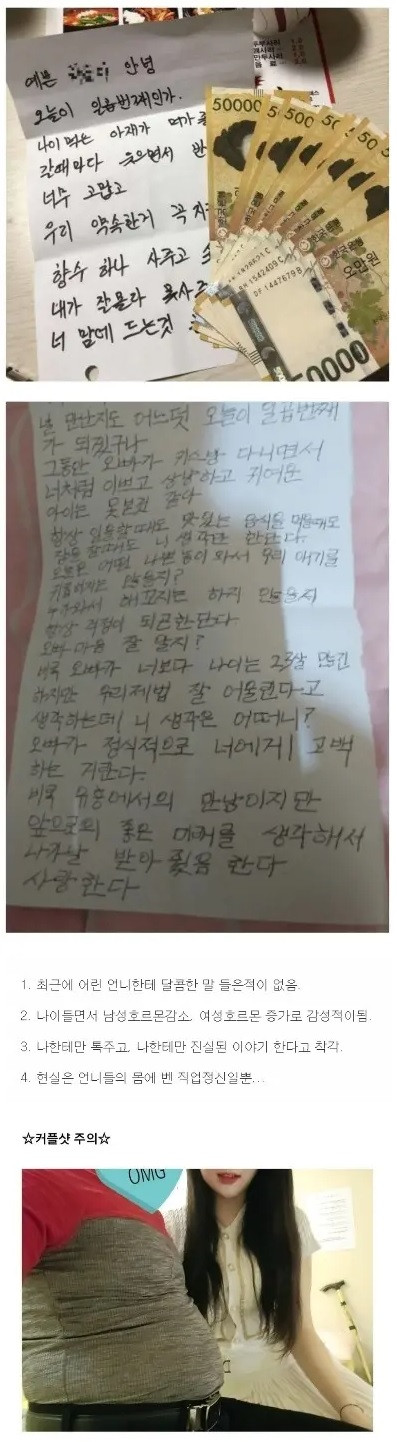 예쁜 안녕
오늘이 일곱번째인가.
나이먹은 아재가 뭐가 좋
갈때마다 웃으면서 반
너무 고맙고
우리 약속한거 꼭 지켜
향수 하나 사주고
내가 잘몰라 못사주
너 맘에 드는것
50000
500
50
오만원
한국은행
BH 1542409 C
DF 1447679 B
50000
널 만난지도 어느덧 오늘이 일곱번째
가 되었구나
그동안 오빠가 키스방 다니면서
너처럼 이쁘고 상냥하고 귀여운
아이는 못본것 같다
항상 일을할때도 맛있는 음식을 먹을때도
잠을 잘때도 니 생각만 한단다.
오늘은 어떤 나쁜놈이 와서 우리 애기를
귀찮게하는 않을지?
누가와서 해꼬지는 하지 않을지
항상 걱정이 되곤한단다
오빠 마음 잘 알지?
비록 오빠가 너보다 나이는 23살 많긴
하지만 우리제법 잘 어울린다고
생각하는데 니 생각은 어떠니?
오빠가 정식적으로 너에게 고백
하는 거란다.
비록 유흥에서의 만남이지만
앞으로의 좋은 미래를 생각해서
나를 받아줬음 한다
사랑한다
1. 최근에 어린 언니한테 달콤한 말 들은적이 없음.
2. 나이들면서 남성호르몬감소, 여성호르몬 증가로 감성적이됨.
3. 나한테만 톡주고, 나한테만 진실된 이야기 한다고 착각.
4. 현실은 언니들의 몸에 벤 직업정신일뿐...
☆커플샷 주의☆
OMG